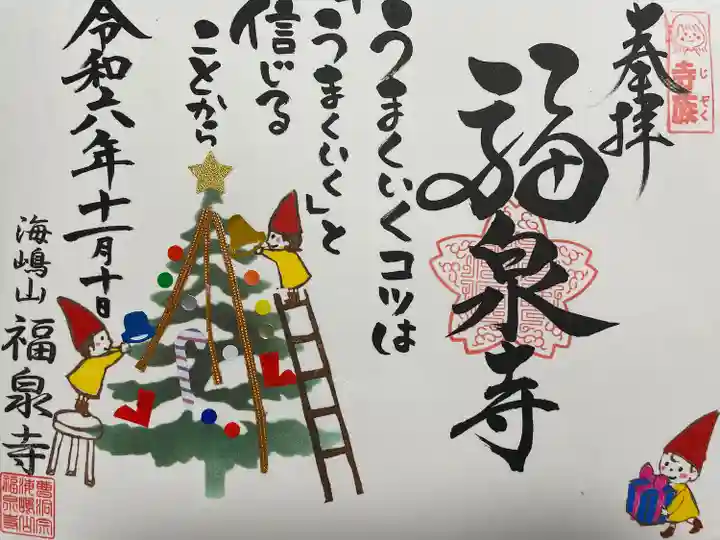 奉拝
じぞく
寺族
福泉寺
うまくいくコツは
「うまくいく」と
信じる
ことから
令和六年十一月十日
海嶋山 福泉寺
曹洞宗
海嶋山
福泉寺